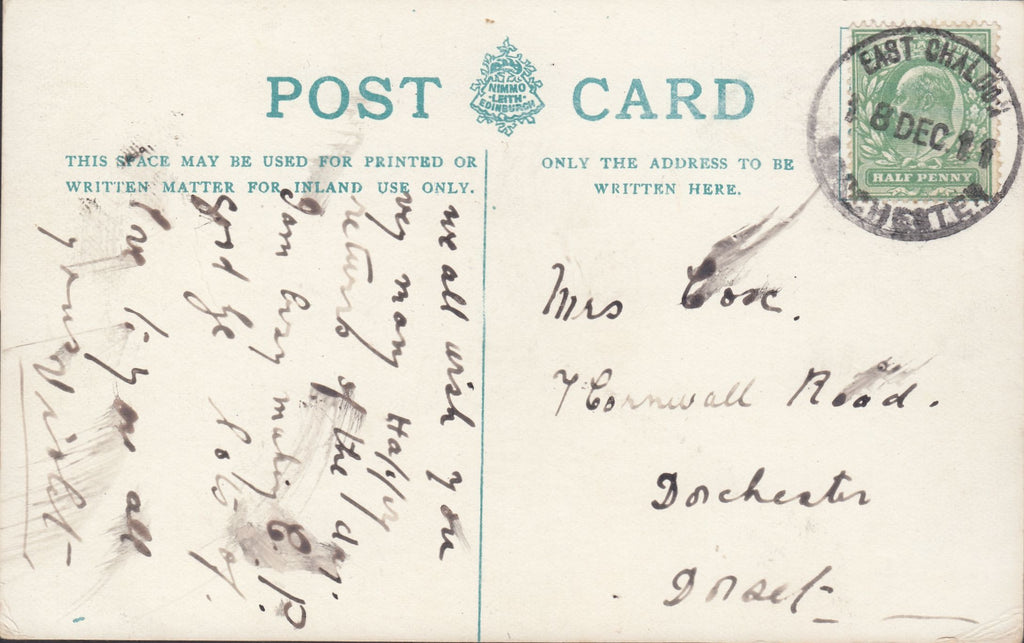 POST CARD
NIMMO
LEITH
EDINBURGH
THIS SPACE MAY BE USED FOR PRINTED OR
WRITTEN MATTER FOR INLAND USE ONLY.
ONLY THE ADDRESS TO BE
WRITTEN HERE.
EAST CHALDON
8 DEC 11
DORCHESTER
HALF PENNY
we all wish you
very many Happy
returns of the day.
I am busy making C. P.
Good Bye lots of
love to you all
yours Violet
Mrs Cox.
7 Cornwall Road.
Dorchester
Dorset